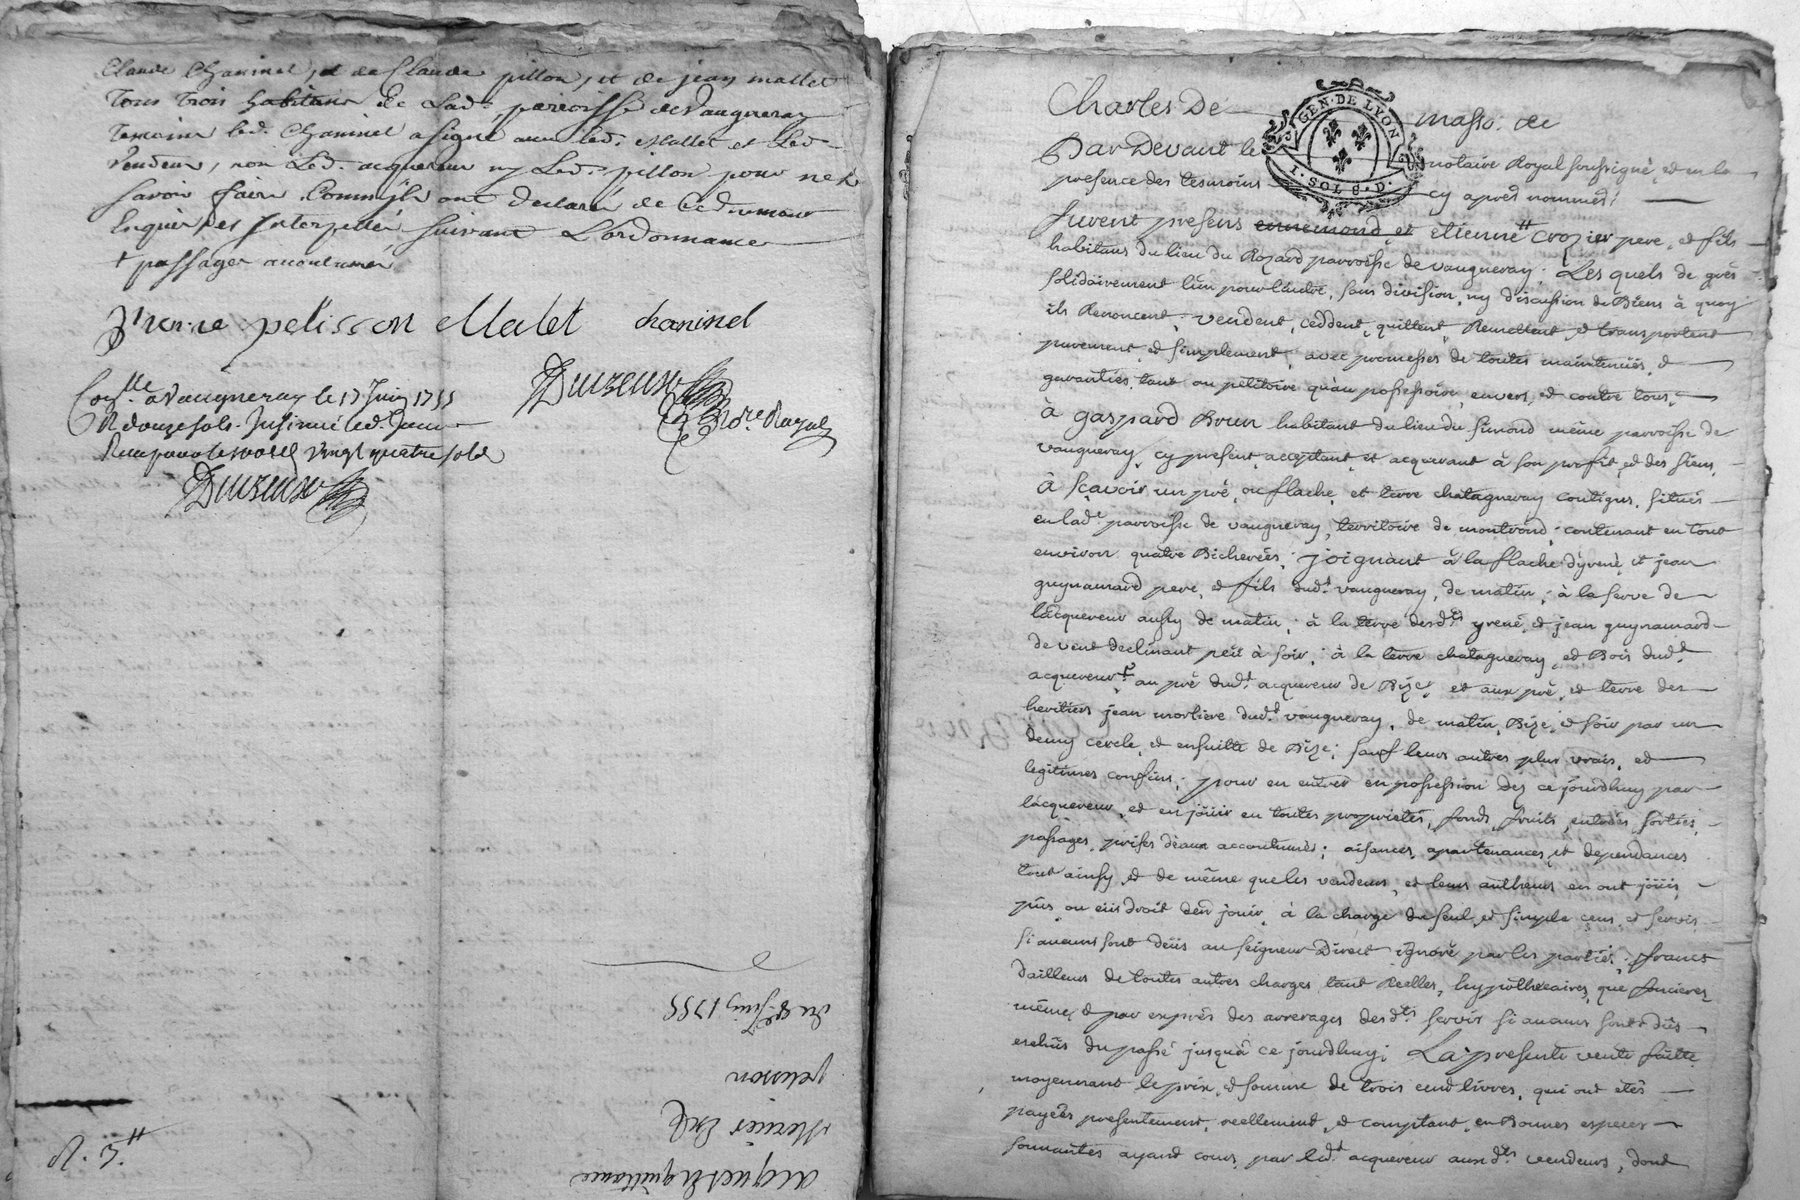 Claude Chaninel, et de Claude pillon, et de jean mallet
tous trois habitans de Lad. parroisse de Vaugneray
temoins led. Chaninel a signé avec led. Mallet et led.
Vendeur, non Led. acquereur ny Led. pillon pour ne
savoir faire comm'ils ont declaré de ce
Enquis et Interpellés suivant L'ordonnance
+ passages accoutumés
pelisson Malet chaninel
Con.lle a Vaugneray le 17 Juin 1755
R douze sols. Insinué led. Jour
vingt quatre sols
No.re Royal
du 8e Juin 1755
pelisson
acquet & quittance
Charles De masso. de
GEN. DE LYON
I. SOL 8. D.
Par Devant le notaire Royal soussigné, et en la
presence des tesmoins cy apres nommés,
furent presens ennemond et etienne crozier pere, et fils
habitans du lieu du Rozard parroisse de vaugneray. Les quels de gres
solidairement l'un pour l'autre, sans division, ny discussion de Biens à quoy
ils Renoncent, vendent, ceddent, quittent, Remettent, et transportent
purement, et simplement, avec promesses de toutes maintenües, et
garanties, tant au petitoire qu'au possessoire, envers, et contre tous,
à gaspard Brun habitant du lieu du simond même parroisse de
vaugneray, cy present, acceptant, et acquerant à son profit, et des siens,
à sçavoir un pré, ou flache, et terre chataigneray contigus, situés
en lad.e parroisse de vaugneray, territoire de montrond; contenant en tout
environ quatre Bicherées; joignant à la flache d'yrené, et jean
guynamard pere, et fils dud.t vaugneray, de matin; à la serve de
l'acquereur aussy de matin; à la terre desd.ts yrené, et jean guynamard
de vent declinant peu à soir; à la terre chataigneray, et Bois dud.t
acquereur, au pré dud.t acquereur de Bize, et aux pré, et terre des
heritiers jean morliere dud.t vaugneray, de matin, Bize, et soir par un
demy cercle, et ensuitte de Bize; sauf leurs autres plus vrais, et
legitimes confins; pour en entrer en possession dez ce jourdhuy par
l'acquereur, et en jöuir en toutes proprietés, fonds, fruits, entrées, sorties,
passages, prises d'eaux accoutumés; aisances, apartenances, et dependances
tout ainsy, et de même que les vendeurs, et leurs autheurs en ont jöüis,
pûs, ou eüs droit d'en jouir, à la charge du seul, et simple cens, et servis
si aucuns sont deüs au seigneur Direct ignoré par les parties; francs
d'ailleurs de toutes autres charges, tant Reelles, hypothecaires, que foncieres,
même, et par exprés des arrerages desd.ts servis si aucuns sont dûs
eschûs du passé jusqu'à ce jourdhuy; La presente vente faitte
moyennant le prix, et somme de trois cent livres, qui ont etés
payées presentement, reellement, et comptant, en Bonnes especes
sonnantes ayant cours, par led.t acquereur aux d.ts vendeurs, dont